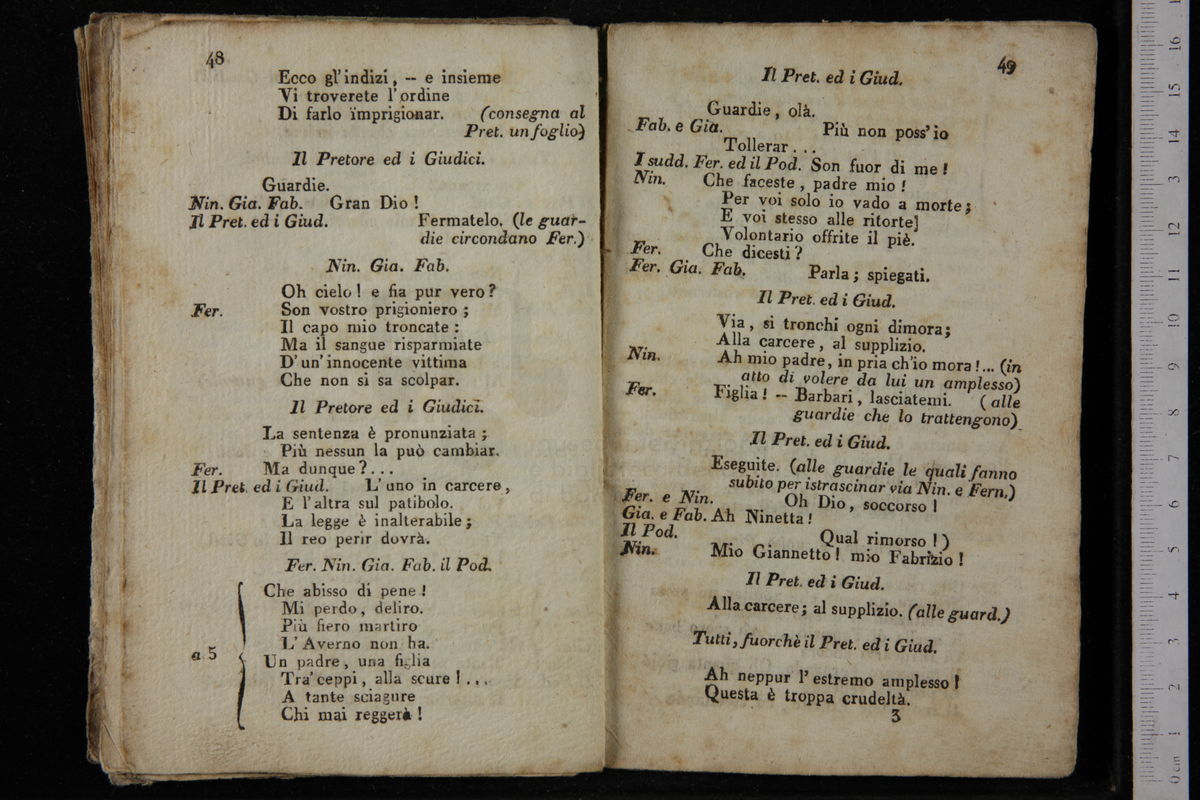 48
Ecco gl'indizi, -- e insieme
Vi troverete l'ordine
Di farlo ïmprigionar. (consegna al
Pret. un foglio)
Il Pretore ed i Giudici.
Guardie.
Nin. Gia. Fab. Gran Dio !
Il Pret. ed i Giud. Fermatelo. (le guar-
die circondano Fer.)
Nin. Gia. Fab.
Oh cielo ! e fia pur vero ?
Fer. Son vostro prigioniero ;
Il capo mio troncate :
Ma il sangue risparmiate
D'un'innocente vittima
Che non si sa scolpar.
Il Pretore ed i Giudici.
La sentenza è pronunziata ;
Più nessun la può cambiar.
Fer. Ma dunque ? . . .
Il Pret. ed i Giud. L'uno in carcere,
E l'altra sul patibolo.
La legge è inalterabile ;
Il reo perir dovrà.
Fer. Nin. Gia. Fab. il Pod.
Che abisso di pene !
Mi perdo, deliro.
Più fiero martiro
L'Averno non ha.
a 5 Un padre, una figlia
Tra' ceppi, alla scure ! . . .
A tante sciagure
Chi mai reggerà !
49
Il Pret. ed i Giud.
Guardie, olà.
Fab. e Gia. Più non poss'io
Tollerar . . .
I sudd. Fer. ed il Pod. Son fuor di me !
Nin. Che faceste, padre mio !
Per voi solo io vado a morte ;
E voi stesso alle ritorte]
Volontario offrite il piè.
Fer. Che dicesti ?
Fer. Gia. Fab. Parla ; spiegati.
Il Pret. ed i Giud.
Via, si tronchi ogni dimora;
Alla carcere, al supplizio.
Nin. Ah mio padre, in pria ch'io mora !... (in
atto di volere da lui un amplesso)
Fer. Figlia ! -- Barbari, lasciatemi. (alle
guardie che lo trattengono)
Il Pret. ed i Giud.
Eseguite. (alle guardie le quali fanno
subito per istrascinar via Nin. e Fern.)
Fer. e Nin. Oh Dio, soccorso !
Gia. e Fab. Ah Ninetta !
Il Pod. Qual rimorso !)
Nin. Mio Giannetto ! mio Fabrizio !
Il Pret. ed i Giud.
Alla carcere ; al supplizio. (alle guard.)
Tutti, fuorchè il Pret. ed i Giud.
Ah neppur l'estremo amplesso !
Questa è troppa crudeltà.
3
0 cm 1 2 3 4 5 6 7 8 9 10 11 12 13 14 15 16